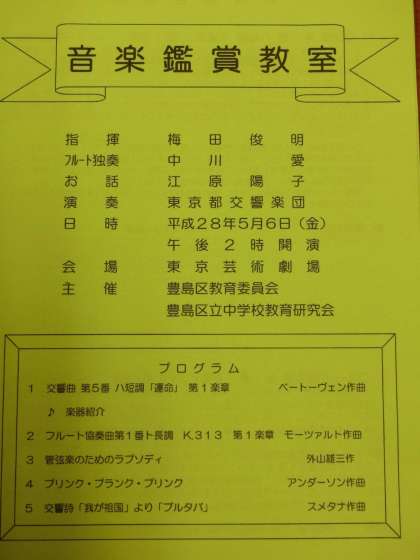 音楽鑑賞教室
指揮 梅田俊明
ﾌﾙｰﾄ独奏 中川愛
お話 江原陽子
演奏 東京都交響楽団
日時 平成28年5月6日(金)
午後2時開演
会場 東京芸術劇場
主催 豊島区教育委員会
豊島区立中学校教育研究会
プログラム
1 交響曲 第5番 ハ短調「運命」 第1楽章 ベートーヴェン作曲
♪ 楽器紹介
2 フルート協奏曲第1番ト長調 K.313 第1楽章 モーツァルト作曲
3 管弦楽のためのラプソディ 外山雄三作
4 プリンク・プランク・プリンク アンダーソン作曲
5 交響詩「我が祖国」より「ブルタバ」 スメタナ作曲